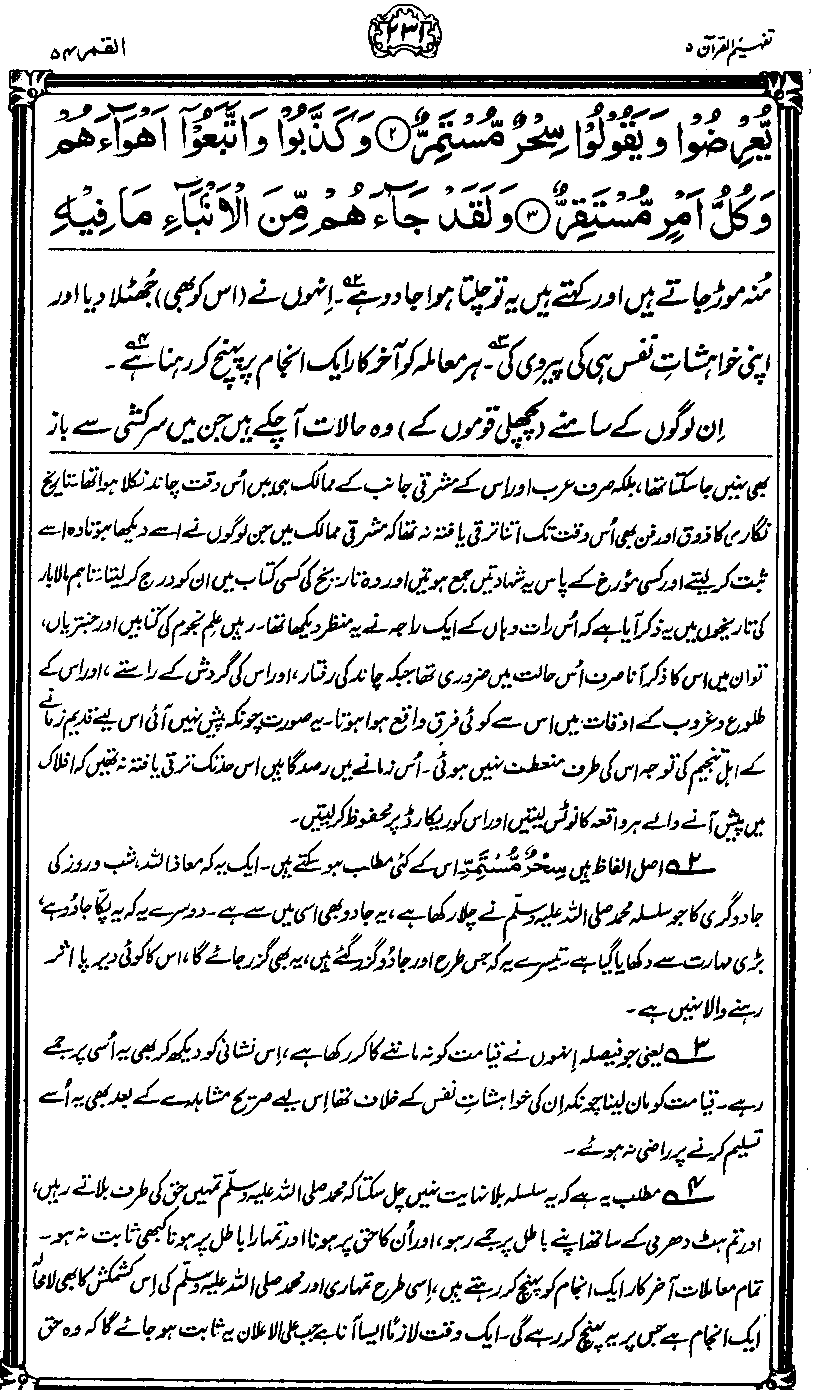 تفہیم القرآن ۵
۲۳۱
القمر ۵۴
يُّعْرِضُوْا وَيَقُوْلُوْا سِحْرٌ مُّسْتَمِرٌّ ۲ وَكَذَّبُوْا وَاتَّبَعُوْٓا اَهْوَآءَهُمْ
وَكُلُّ اَمْرٍ مُّسْتَقِرٌّ ۳ وَلَقَدْ جَآءَهُمْ مِّنَ الْاَنْۢبَآءِ مَا فِيْهِ
مُنہ موڑ جاتے ہیں اور کہتے ہیں یہ تو چلتا ہوا جادو ہے۲؎۔ اِنہوں نے (اس کو بھی) جُھٹلا دیا اور
اپنی خواہشاتِ نفس ہی کی پیروی کی۳؎۔ ہر معاملہ کو آخر کار ایک انجام پر پہنچ کر رہنا ہے۴؎۔
اِن لوگوں کے سامنے (پچھلی قوموں کے) وہ حالات آ چکے ہیں جن میں سرکشی سے باز
بھی نہیں جا سکتا تھا، بلکہ صرف عرب اور اس کے مشرقی جانب کے ممالک ہی میں اُس وقت چاند نکلا ہوا تھا۔ تاریخ
نگاری کا ذوق اور فن بھی اُس وقت تک اتنا ترقی یافتہ نہ تھا کہ مشرقی ممالک میں جن لوگوں نے اسے دیکھا ہوتا وہ اسے
ثبت کر لیتے اور کسی مؤرخ کے پاس یہ شہادتیں جمع ہوتیں اور وہ تاریخ کی کسی کتاب میں ان کو درج کر لیتا۔ تاہم مالابار
کی تاریخوں میں یہ ذکر آیا ہے کہ اُس رات وہاں کے ایک راجہ نے یہ منظر دیکھا تھا۔ رہیں علمِ نجوم کی کتابیں اور جنتریاں،
تو ان میں اس کا ذکر آنا صرف اُس حالت میں ضروری تھا جبکہ چاند کی رفتار، اور اس کی گردش کے راستے، اور اس کے
طلوع و غروب کے اوقات میں اس سے کوئی فرق واقع ہوا ہوتا۔ یہ صورت چونکہ پیش نہیں آئی اس لیے قدیم زمانے
کے اہلِ تنجیم کی توجہ اس کی طرف منعطف نہیں ہوئی۔ اُس زمانے میں رصدگاہیں اس حد تک ترقی یافتہ نہ تھیں کہ افلاک
میں پیش آنے والے ہر واقعہ کا نوٹس لیتیں اور اس کو ریکارڈ پر محفوظ کر لیتیں۔
۲؎ اصل الفاظ ہیں سِحْرٌ مُّسْتَمِرٌّ اس کے کئی مطلب ہو سکتے ہیں۔ ایک یہ کہ معاذ اللہ، شب و روز کی
جادوگری کا جو سلسلہ محمد صلی اللہ علیہ وسلّم نے چلا رکھا ہے، یہ جادو بھی اسی میں سے ہے۔ دوسرے یہ کہ یہ پکّا جادُو ہے،
بڑی مہارت سے دکھایا گیا ہے۔ تیسرے یہ کہ جس طرح اور جادُو گزر گئے ہیں، یہ بھی گزر جائے گا، اس کا کوئی دیر پا اثر
رہنے والا نہیں ہے۔
۳؎ یعنی جو فیصلہ اِنہوں نے قیامت کو نہ ماننے کا کر رکھا ہے، اِس نشانی کو دیکھ کر بھی یہ اُسی پر جمے
رہے۔ قیامت کو مان لینا چونکہ اِن کی خواہشاتِ نفس کے خلاف تھا اِس لیے صریح مشاہدے کے بعد بھی یہ اُسے
تسلیم کرنے پر راضی نہ ہوئے۔
۴؎ مطلب یہ ہے کہ یہ سلسلہ بلا نہایت نہیں چل سکتا کہ محمد صلی اللہ علیہ وسلّم تمہیں حق کی طرف بلاتے رہیں،
اور تم ہٹ دھرمی کے ساتھ اپنے باطل پر جمے رہو، اور اُن کا حق پر ہونا اور تمہارا باطل پر ہونا کبھی ثابت نہ ہو۔
تمام معاملات آخر کار ایک انجام کو پہنچ کر رہتے ہیں، اِسی طرح تمہاری اور محمد صلی اللہ علیہ وسلّم کی اِس کشمکش کا بھی لامحالہ
ایک انجام ہے جس پر یہ پہنچ کر رہے گی۔ ایک وقت لازمًا ایسا آنا ہے جب علی الاعلان یہ ثابت ہو جائے گا کہ وہ حق